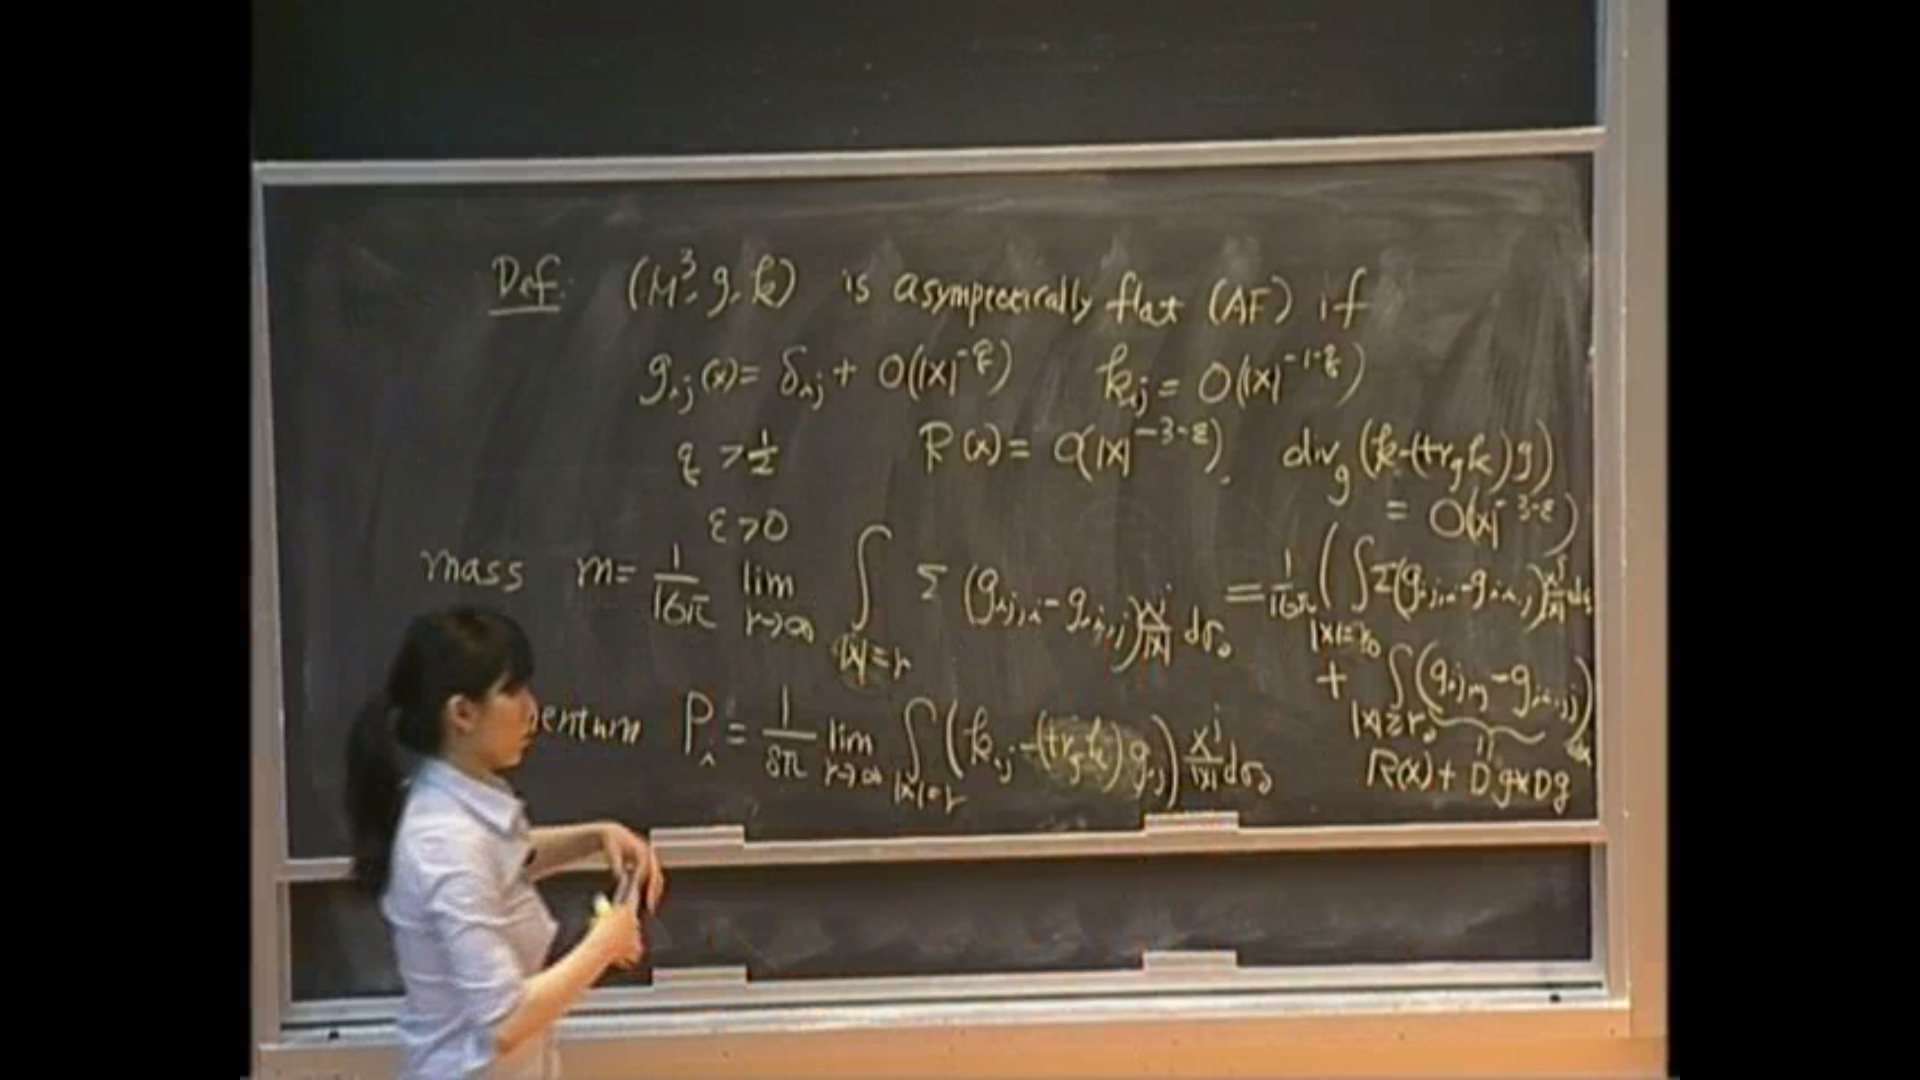 Def: (M³, g, k) is asymptotically flat (AF) if
g_ij(x) = δ_ij + O(|x|^{-q})   k_ij = O(|x|^{-1-q})
q > 1/2   R(x) = O(|x|^{-3-ε}),   div_g (k-(tr_g k)g)
ε > 0   = O(|x|^{-3-ε})
mass   m = 1/16π lim_{r→∞} ∫_{|x|=r} Σ (g_ij,i - g_ii,j) x^j/|x| dσ_0 = 1/16π ( ∫_{|x|=r_0} Σ (g_ij,i - g_ii,j) x^j/|x| dσ
+ ∫_{|x|≥r_0} (g_ij,ij - g_ii,jj) dx
entum   P_i = 1/8π lim_{r→∞} ∫_{|x|=r} (k_ij - (tr_g k) g_ij) x^j/|x| dσ_0
R(x) + Dg * Dg